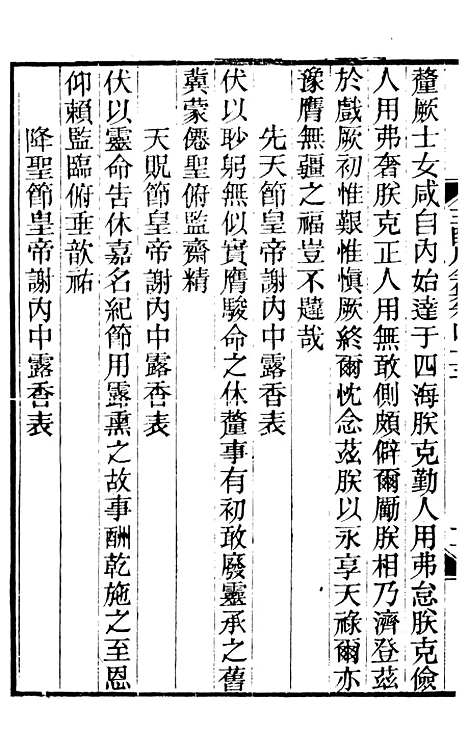 釐厥士女咸自内始達于四海朕克勤人用弗怠朕克儉
人用弗奢朕克正人用無敢側頗僻爾勵朕相乃濟登茲
於戲厥初惟艱惟慎厥終爾忱念茲朕以永享天祿爾亦
豫膺無疆之福豈不韙哉
先天節皇帝謝内中露香表
伏以眇躬無似實膺駿命之休釐事有初敢廢靈承之舊
冀蒙僊聖俯監齋精
天貺節皇帝謝内中露香表
伏以靈命告休嘉名紀節用露熏之故事酬乾施之至恩
仰賴監臨俯垂歆祐
降聖節皇帝謝内中露香表